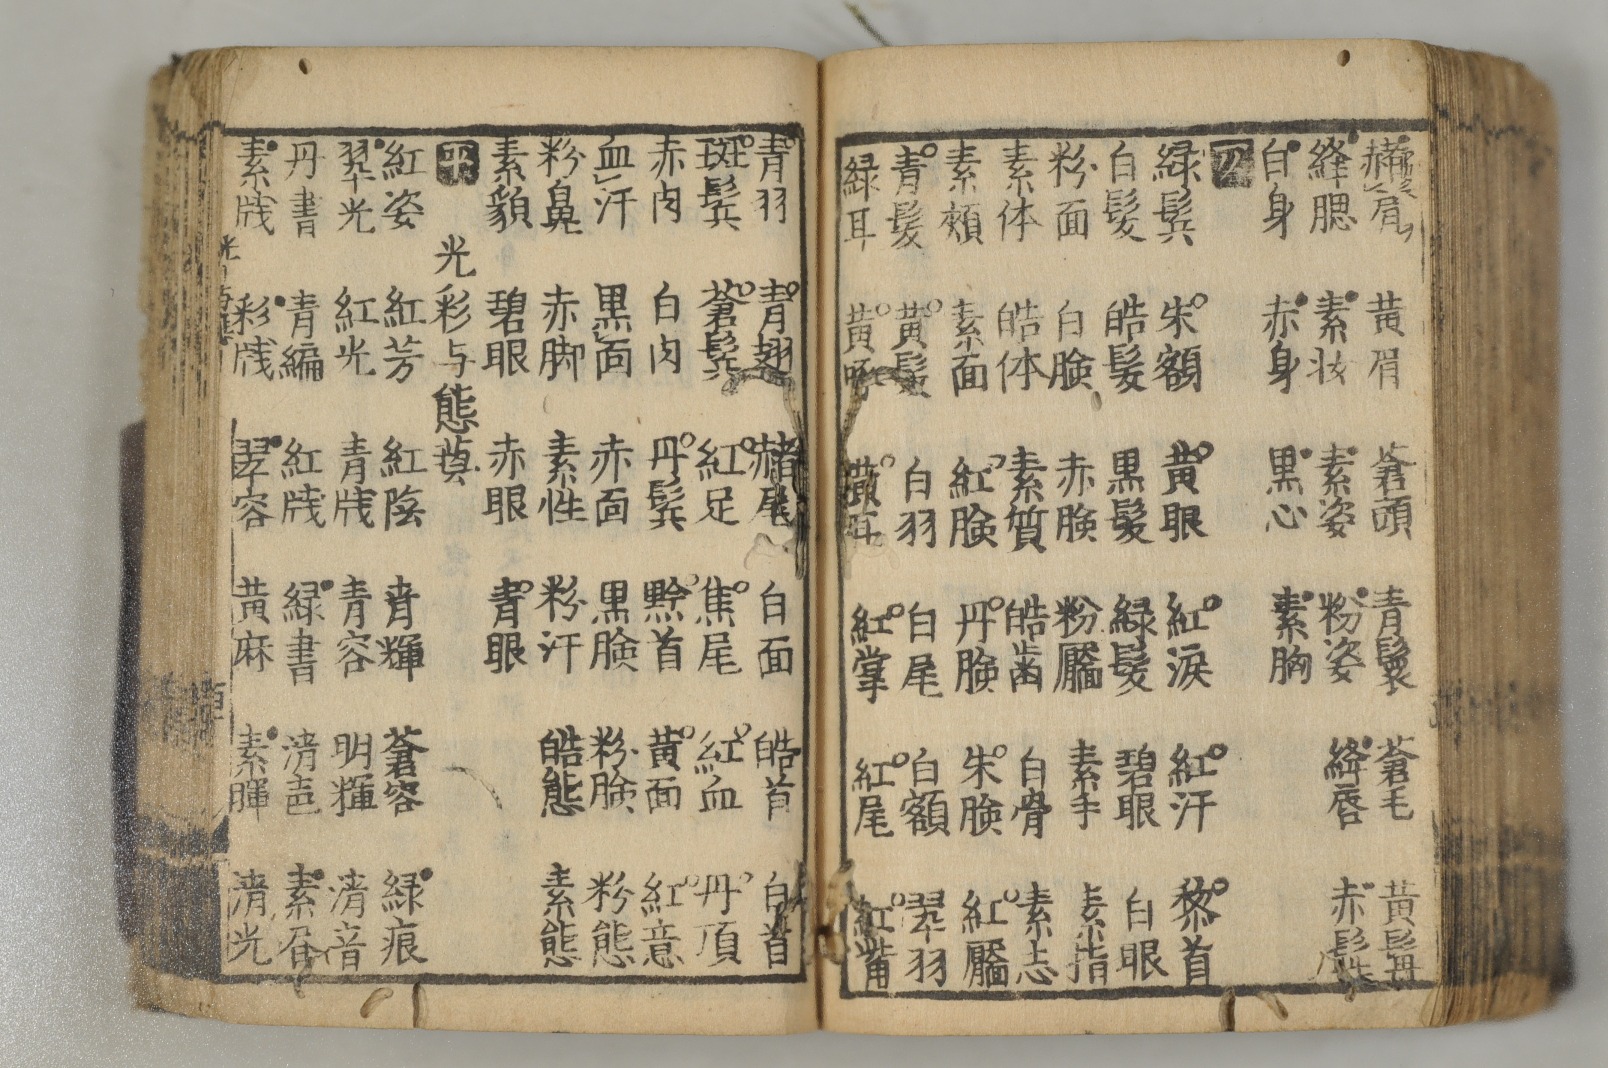 眉 黄眉 蒼頭 青鬟 蒼毛 黄髯
絳腮 素妆 素姿 粉姿 絳唇 赤髭
白身 赤身 黒心 素胸
仄
緑鬂 朱額 黄眼 紅涙 紅汗 黎首
白髪 皓髪 黒髪 緑髪 碧眼 白眼
粉面 白臉 赤臉 粉靨 素手 素指
素体 皓体 素質 皓歯 白骨 素志
素頰 素面 紅臉 丹臉 朱臉 紅靨
青髪 黄髪 白羽 白尾 白額 翠羽
緑耳 黄 紅掌 紅尾 紅觜
青羽 青翅 赭尾 白面 皓首 白首
斑鬂 蒼鬂 紅足 焦尾 紅血 丹頂
赤肉 白肉 丹鬂 黔首 黄面 紅意
血汗 黒面 赤面 黒臉 粉臉 粉態
粉鼻 赤脚 素性 粉汗 皓態 素態
素貌 碧眼 赤眼 青眼
平 光彩与態
紅姿 紅芳 紅陰 青輝 蒼容 緑痕
翠光 紅光 青牋 青容 明輝 清音
丹書 青編 紅牋 緑書 清声 素
素牋 彩牋 翠容 黄麻 素暉 清光